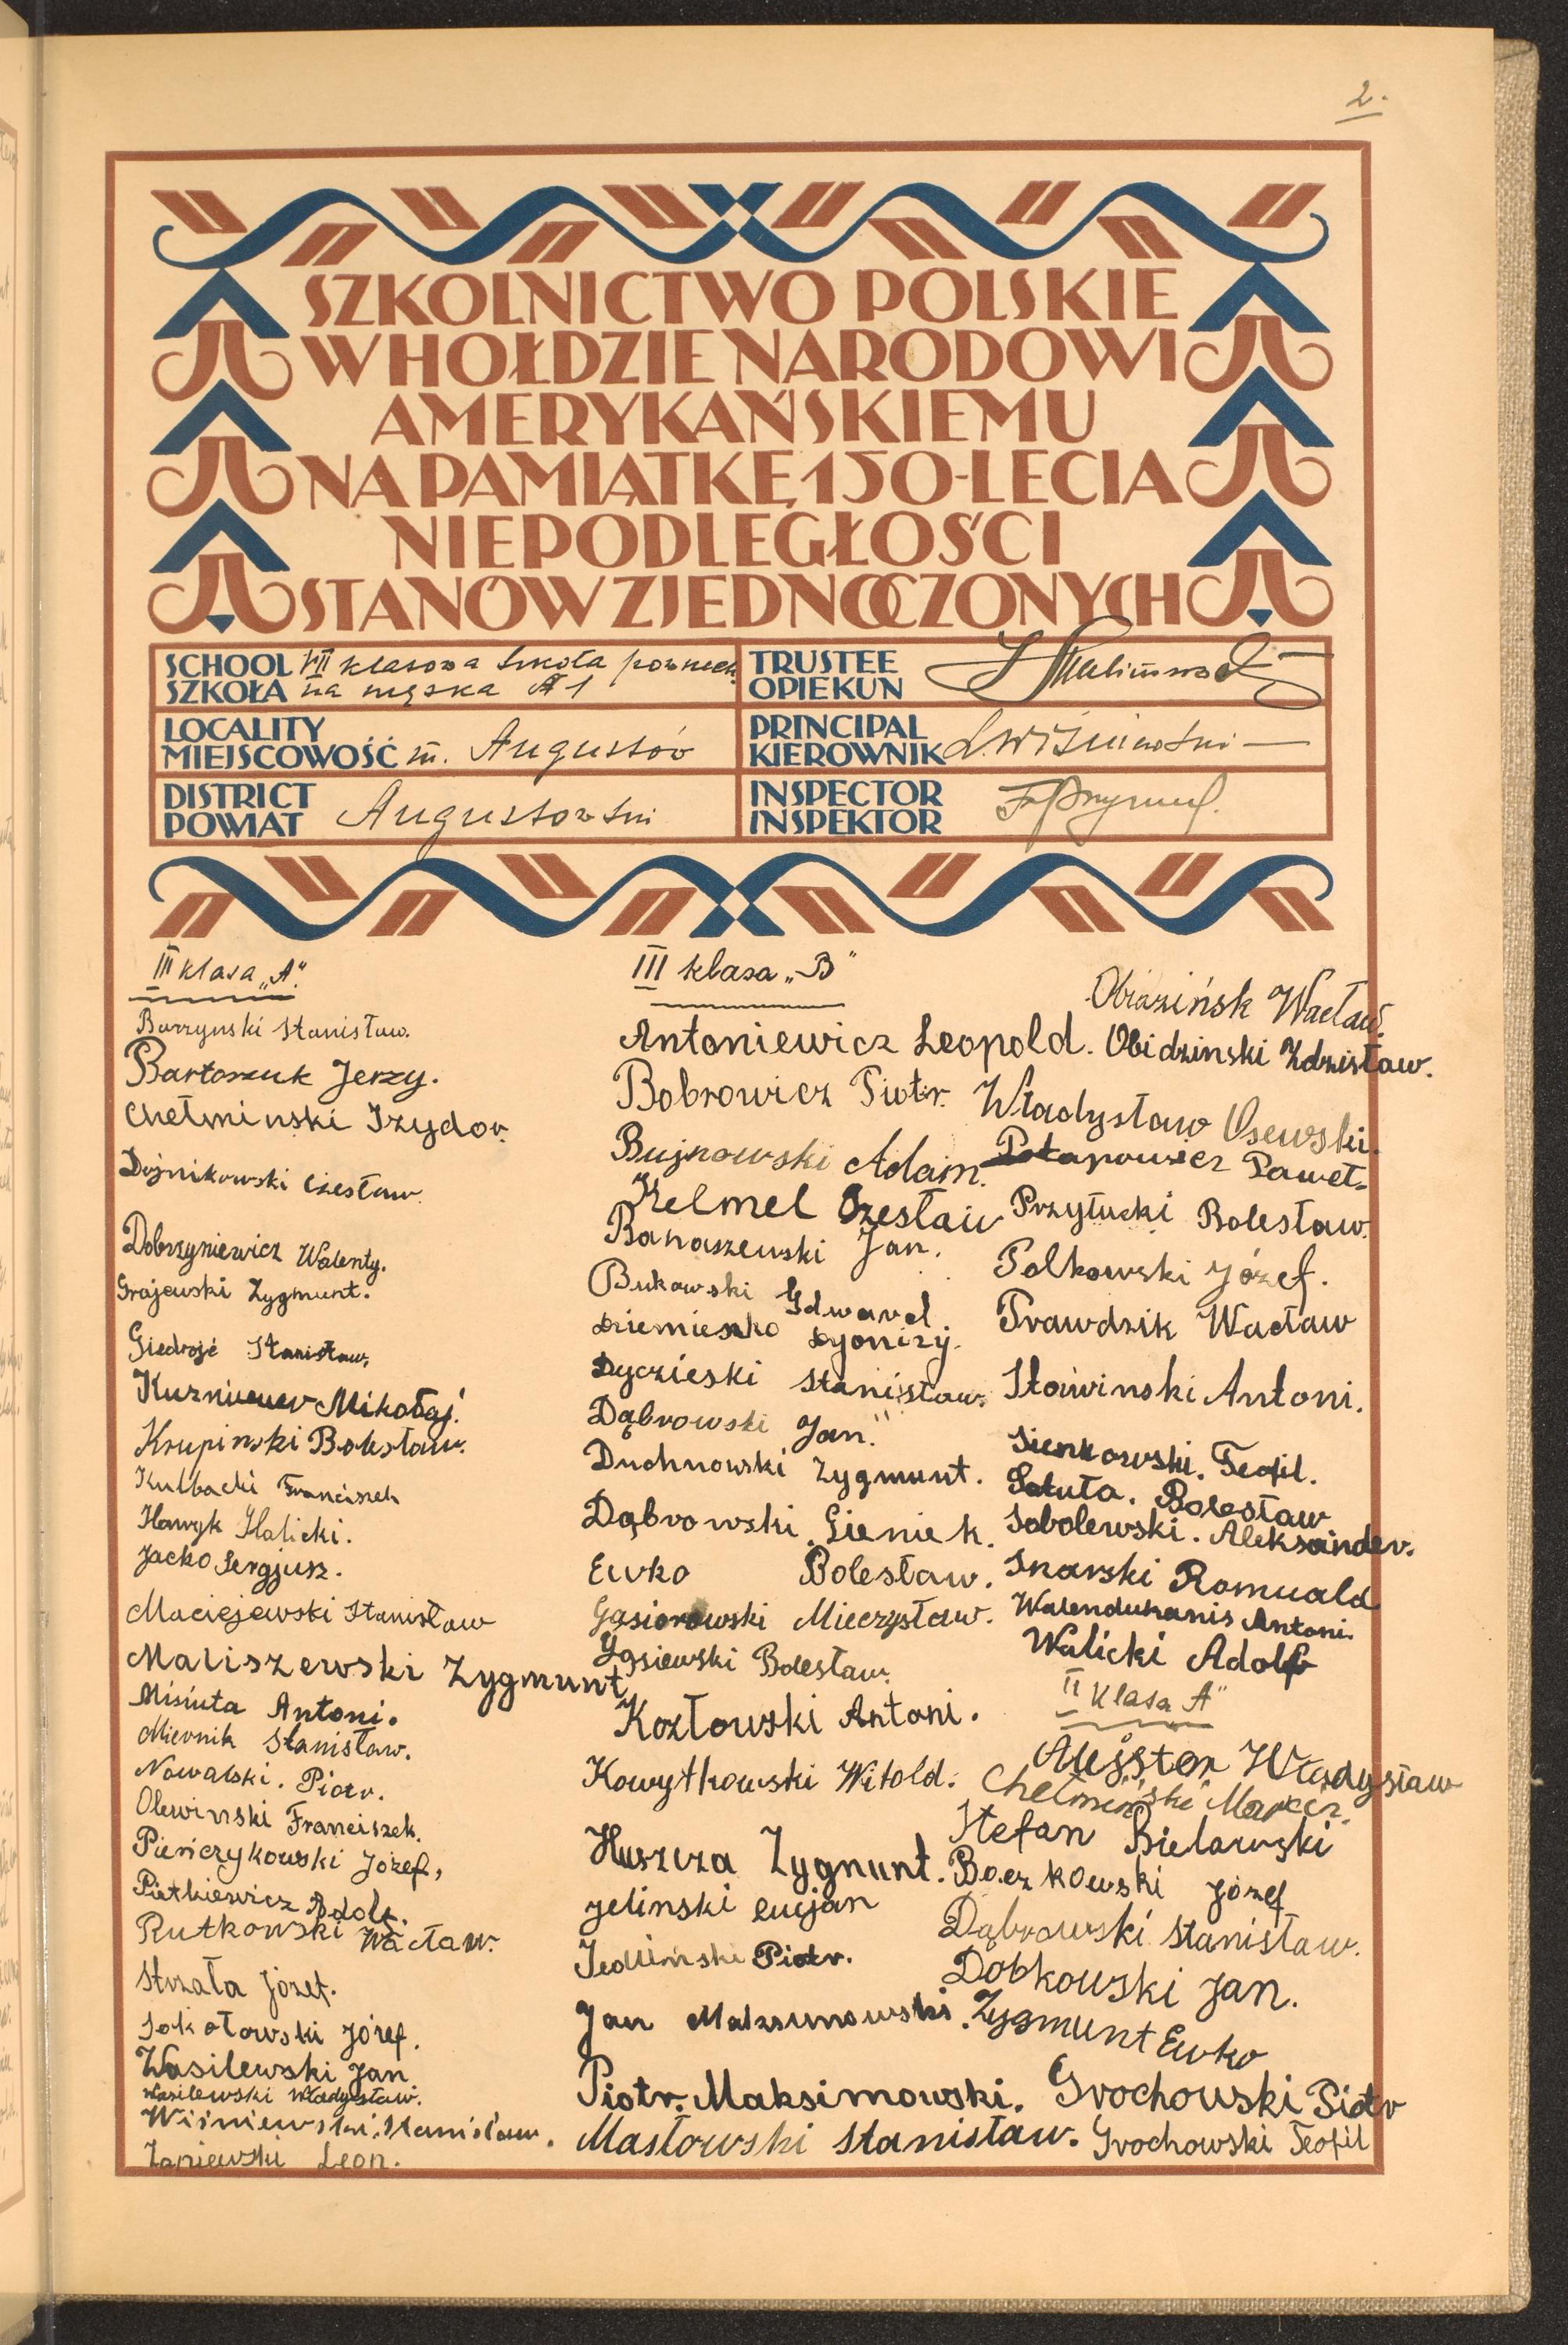 2.
SZKOLNICTWO POLSKIE
W HOŁDZIE NARODOWI
AMERYKAŃSKIEMU
NA PAMIĄTKĘ 150-LECIA
NIEPODLEGŁOŚCI
STANÓW ZJEDNOCZONYCH
SCHOOL VII klasowa Szkoła powszech
SZKOŁA na męska № 1
TRUSTEE
OPIEKUN
LOCALITY
MIEJSCOWOŚĆ m. Augustów
PRINCIPAL
KIEROWNIK L. Wiśniewski
DISTRICT
POWIAT Augustowski
INSPECTOR
INSPEKTOR
III klasa „A".
Burzynski Stanisław.
Bartoszuk Jerzy.
Chełminski Izydor.
Dojnikowski Czesław.
Dobrzyniewicz Walenty.
Grajewski Zygmunt.
Giedrojć Stanisław.
Mikołaj.
Krupinski Bolesław.
Kulbacki Franciszek
Hawryk Halicki.
Jacko Sergjusz.
Maciejewski Stanisław
Maliszewski Zygmunt
Misiuta Antoni.
Miernik Stanisław.
Nowalski. Piotr.
Olewinski Franciszek.
Pieńczykowski Józef,
Pietkiewicz Adolf.
Rutkowski Wacław.
Strzała Józef.
Sokołowski Józef.
Wasilewski Jan
Wasilewski Władysław.
Wiśniewski Stanisław.
Zaniewski Leon.
III klasa „B"
Antoniewicz Leopold.
Bobrowicz Piotr.
Bujnowski Adam.
Kelmel Czesław
Banaszewski Jan.
Bukowski Edward
Dziemieszko Dyonizy.
Dyczieski Stanisław.
Dąbrowski Jan."
Duchnowski Zygmunt.
Dąbrowski Gieniek.
Ewko Bolesław.
Gąsiorowski Mieczysław.
Gąsiewski Bolesław.
Kozłowski Antoni.
Kowytkowski Witold.
Huszcza Zygmunt.
Jelinski Lucjan
Jedliński Piotr.
Jan Maksimowski.
Piotr. Maksimowski.
Masłowski Stanisław.
Obiazińsk Wacław.
Obidzinski Zdzisław.
Władysław Osewski.
Potapowicz Paweł.
Przytucki Bolesław.
Polkowski Józef.
Prawdzik Wacław
Sławinski Antoni.
Sienkowski. Teofil.
Sakuta. Bolesław
Sobolewski. Aleksander.
Snarski Romuald
Walendukanis Antoni.
Walicki Adolf
II klasa A"
Alejster Władysław
Chełmiński Marcin.
Stefan Bielawski
Boczkowski Józef
Dąbrowski Stanisław.
Dobkowski Jan.
Zygmunt Ewko
Grochowski Piotr
Grochowski Teofil